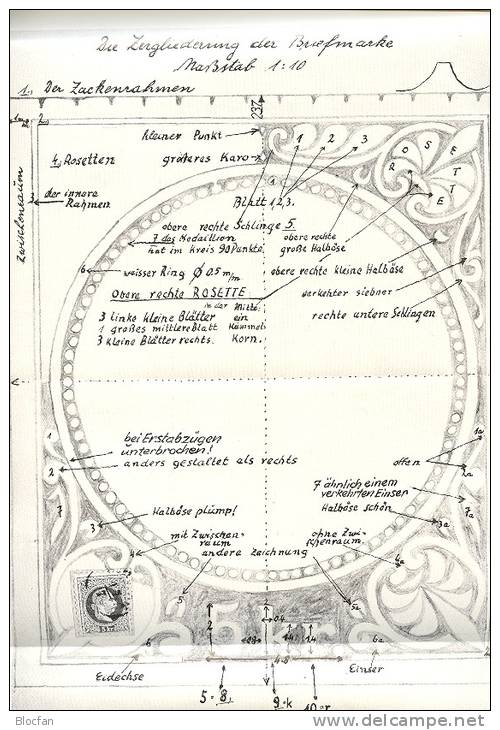 Die Zergliederung der Briefmarke
Maßstab 1:10
1. Der Zackenrahmen
237
2.
kleiner Punkt
1 2 3
ROSETTE
4. Rosetten
größeres Karo
1
Zwischenraum
3
der innere
Rahmen
Blatt 1,2,3.
obere rechte Schlinge 5.
7 das Medaillion
hat im Kreis 90 Punkte.
obere rechte
große Halböse
6
weisser Ring Ø 0,5 m/m
obere rechte kleine Halböse
Obere rechte ROSETTE
in der Mitte
verkehter siebner
3 linke kleine Blätter
ein
1 großes mittlere Blatt
Kümmel
3 kleine Blätter rechts.
Korn.
rechte untere Schlingen
1
bei Erstabzügen
unterbrochen!
anders gestaltet als rechts
1a
offen
2
2a
7 ähnlich einem
verkehrten Einser
7
7a
Halböse plump!
Halböse schön
3
3a
mit Zwischen-
raum
ohne Zwi-
schenraum.
4
andere Zeichnung
4a
5
5a
2
0,4
28
14
14
6
6a
4·8
Eidechse
Einser
5 = 8.
9 = k
10 = r
Blocfan
www.delcampe.net